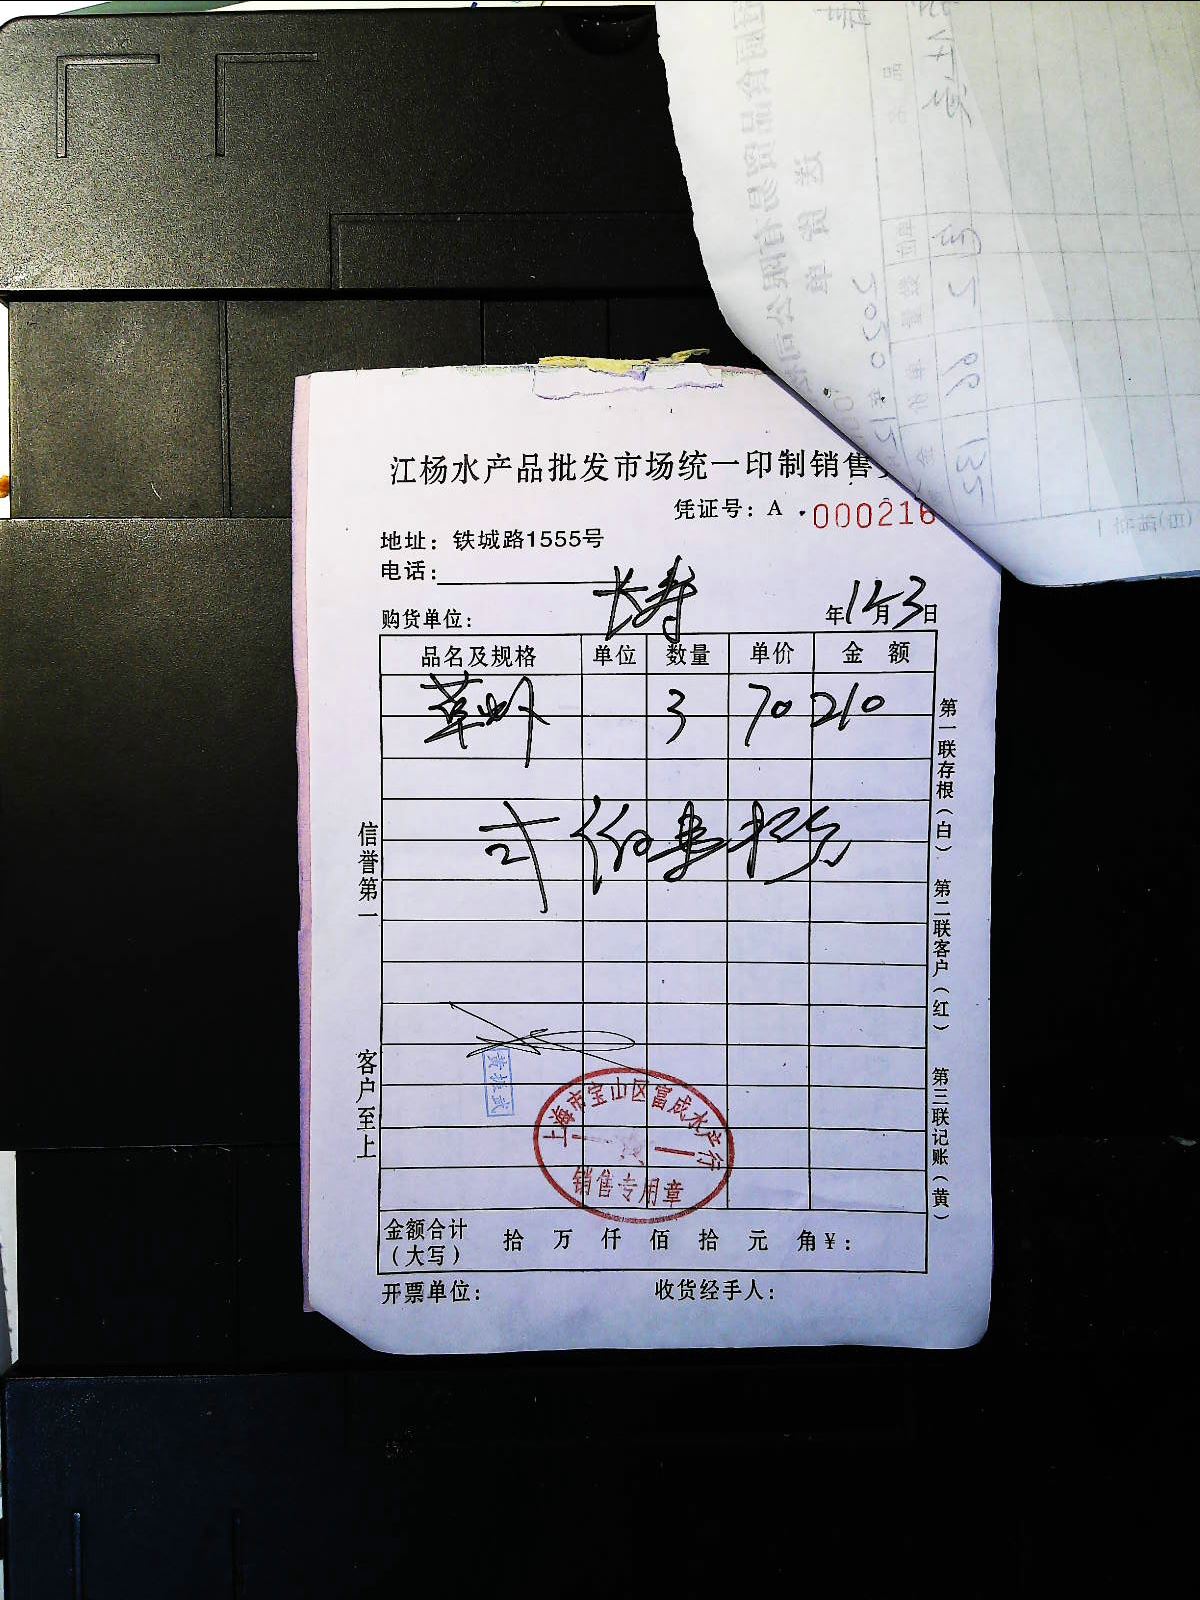 江杨水产品批发市场统一印制销售
凭证号：A 000216
地址：铁城路1555号
电话：
购货单位： 长寿 年12月3日
品名及规格 单位 数量 单价 金 额
草虾 3 70 210
弍佰壹拾元
信誉第一
客户至上
第一联存根（白） 第二联客户（红） 第三联记账（黄）
上海市宝山区富成水产行
销售专用章
金额合计（大写） 拾 万 仟 佰 拾 元 角 ¥：
开票单位： 收货经手人：